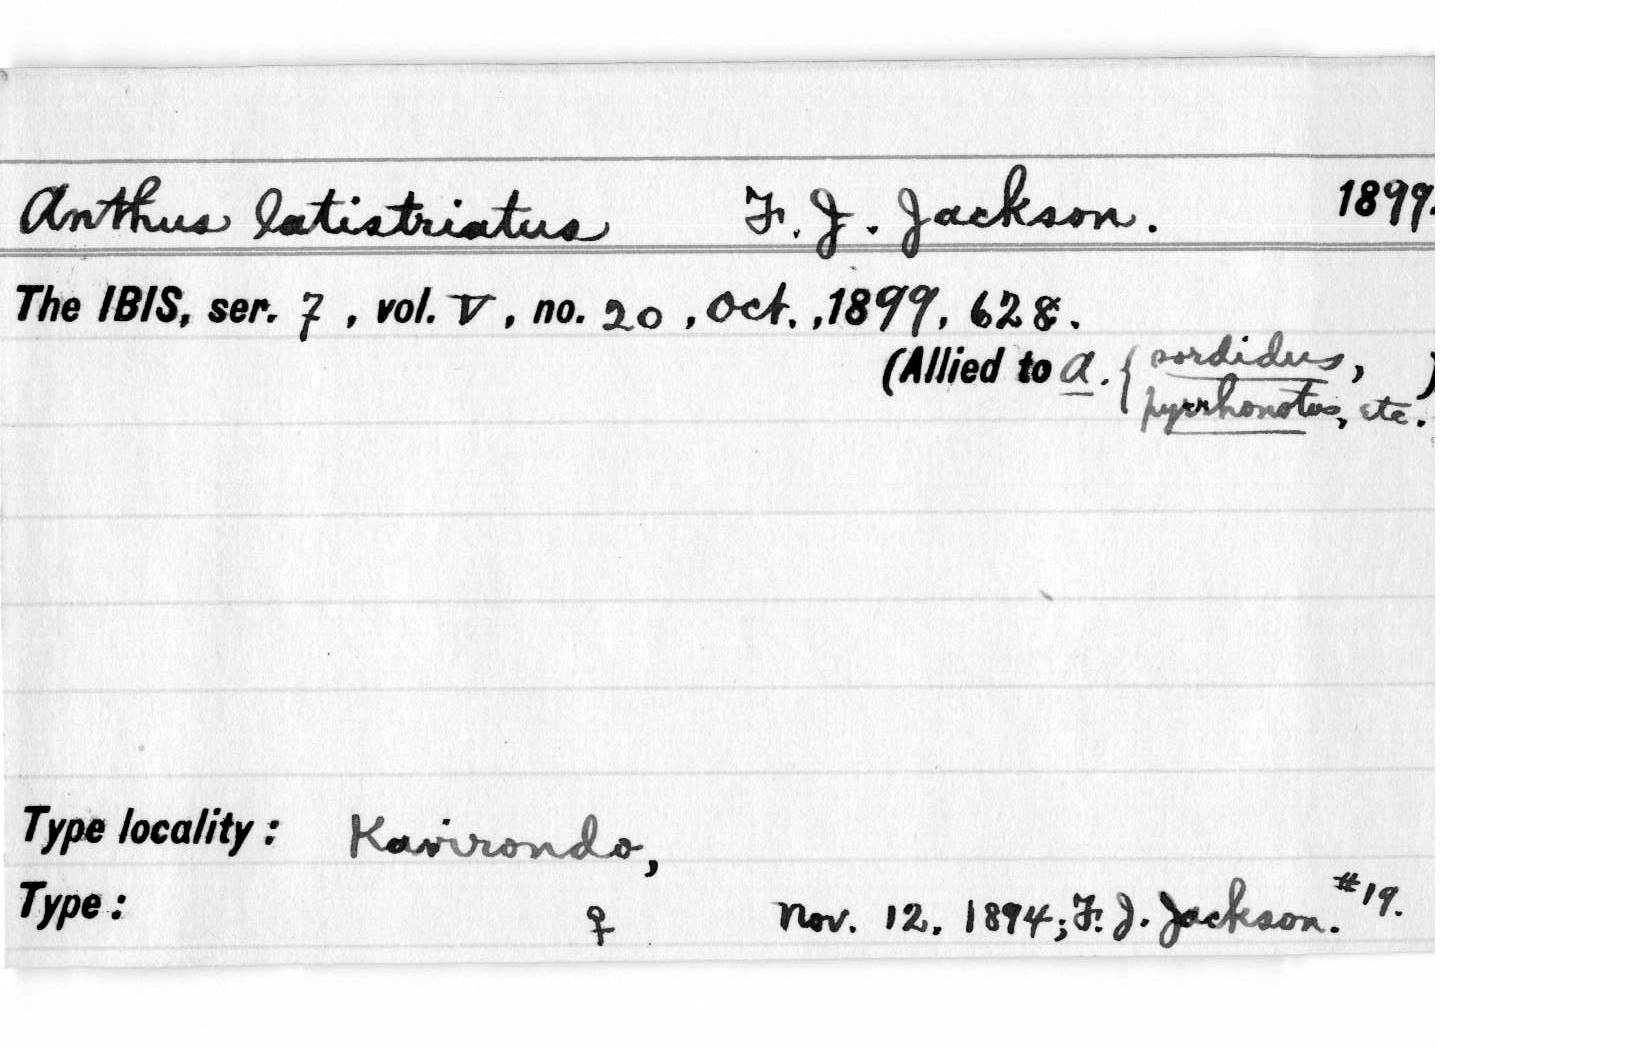 Anthus latistriatus F. J. Jackson. 1899.
The IBIS, ser. 7, vol. V, no. 20, Oct., 1899, 628.
(Allied to A. { sordidus, )
pyrrhonotus, etc.
Type locality: Kavirondo,
Type: ♀ Nov. 12, 1894; F. J. Jackson. #19.